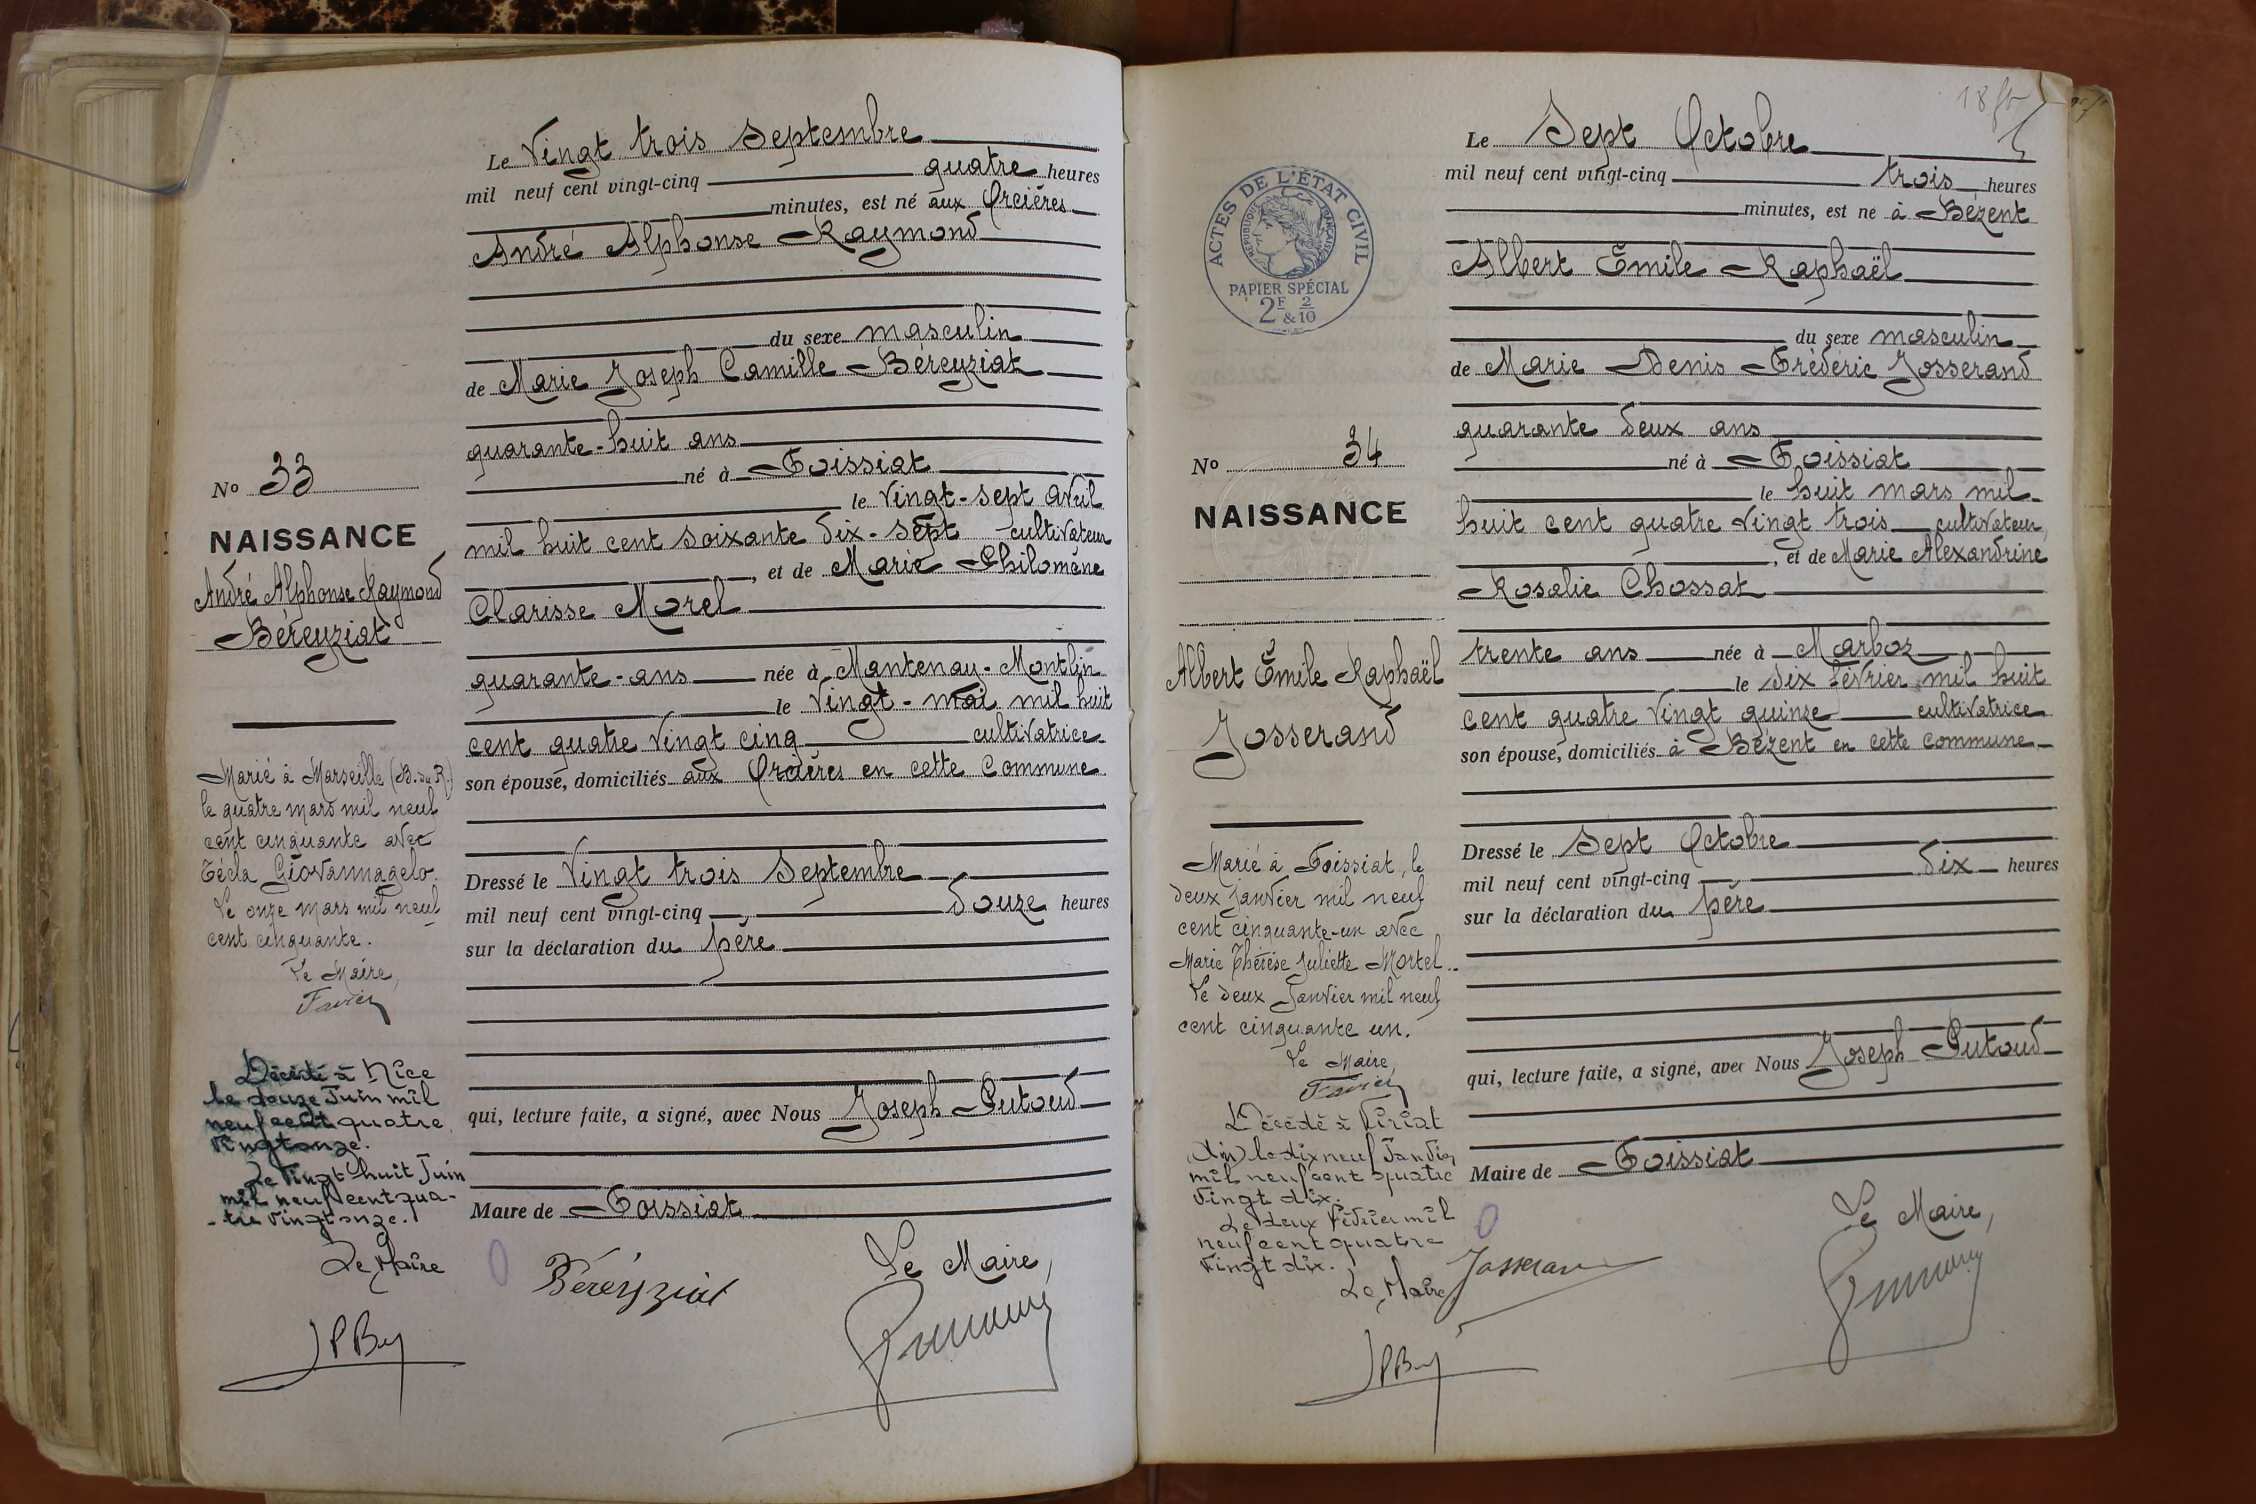 Le Vingt trois Septembre
mil neuf cent vingt-cinq quatre heures
minutes, est né aux Orcières
André Alphonse Raymond
du sexe masculin
de Marie Joseph Camille Béreyziat
quarante-huit ans
né à Foissiat
le vingt-sept avril
mil huit cent soixante dix-sept cultivateur
, et de Marie Philomène
Clarisse Morel
quarante-ans née à Mantenay-Montlin
le vingt-mai mil huit
cent quatre vingt cinq cultivatrice
son épouse, domiciliés aux Orcières en cette commune
Dressé le Vingt trois Septembre
mil neuf cent vingt-cinq douze heures
sur la déclaration du père
qui, lecture faite, a signé, avec Nous Joseph Putoud
Maire de Foissiat
Le Maire,
Béréyziat
No 33
NAISSANCE
André Alphonse Raymond
Béreyziat
Marié à Marseille (B. du R.)
le quatre mars mil neuf
cent cinquante avec
Técla Giovannagelo.
Le onze mars mil neuf
cent cinquante.
Le Maire,
Favier
Décédé à Nice
le douze Juin mil
neuf cent quatre
vingt onze.
Le vingt huit Juin
mil neuf cent qua-
-tre vingt onze.
Le Maire
JPBy
18 fo
Le Sept Octobre
mil neuf cent vingt-cinq trois heures
minutes, est né à Bézent
Albert Émile Raphaël
du sexe masculin
de Marie Denis Frédéric Josserand
quarante deux ans
né à Foissiat
le huit mars mil
huit cent quatre vingt trois cultivateur,
, et de Marie Alexandrine
Rosalie Chossat
trente ans née à Marboz
le dix février mil huit
cent quatre vingt quinze cultivatrice
son épouse, domiciliés à Bézent en cette commune
Dressé le Sept Octobre
mil neuf cent vingt-cinq dix heures
sur la déclaration du père
qui, lecture faite, a signé, avec Nous Joseph Putoud
Maire de Foissiat
Le Maire,
Josserand
ACTES DE L'ÉTAT CIVIL
RÉPUBLIQUE FRANÇAISE
PAPIER SPÉCIAL
2F & 2/10
No 34
NAISSANCE
Albert Émile Raphaël
Josserand
Marié à Foissiat, le
deux Janvier mil neuf
cent cinquante-un avec
Marie Thérèse Juliette Mortel..
Le deux Janvier mil neuf
cent cinquante un.
Le Maire,
Favier
Décédé à Viriat
(Ain) le dix neuf Janvier
mil neuf cent quatre
vingt dix.
Le deux Février mil
neuf cent quatre
vingt dix.
Le Maire
JPBy